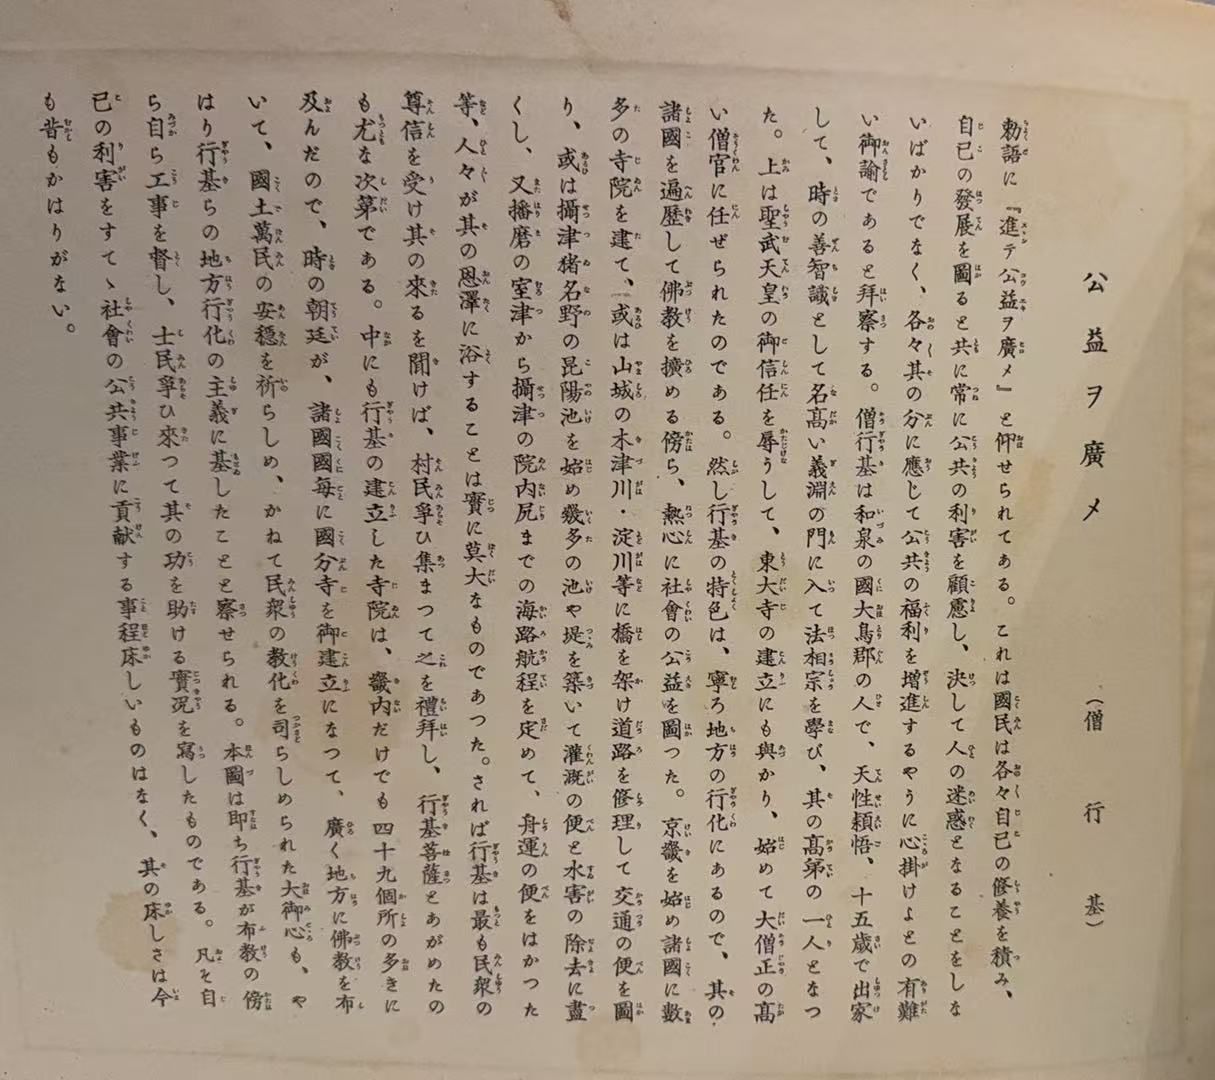 公益ヲ廣メ （僧行基）
勅語に『進テ公益ヲ廣メ』と仰せられてある。これは國民は各々自己の修養を積み、
自己の發展を圖ると共に常に公共の利害を顧慮し、決して人の迷惑となることをしな
いばかりでなく、各々其の分に應じて公共の福利を増進するやうに心掛けよとの有難
い御諭であると拜察する。僧行基は和泉の國大鳥郡の人で、天性穎悟、十五歳で出家
して、時の善智識として名高い義淵の門に入て法相宗を學び、其の高弟の一人となつ
た。上は聖武天皇の御信任を辱うして、東大寺の建立にも與かり、始めて大僧正の高
い僧官に任ぜられたのである。然し行基の特色は、寧ろ地方の行化にあるので、其の
諸國を遍歷して佛教を擴める傍ら、熱心に社會の公益を圖つた。京畿を始め諸國に數
多の寺院を建て、或は山城の木津川・淀川等に橋を架け道路を修理して交通の便を圖
り、或は攝津猪名野の昆陽池を始め幾多の池や堤を築いて灌漑の便と水害の除去に盡
くし、又播磨の室津から攝津の院内尻までの海路航程を定めて、舟運の便をはかつた
等、人々が其の恩澤に浴することは實に莫大なものであつた。されば行基は最も民衆の
尊信を受け其の來るを聞けば、村民爭ひ集まつて之を禮拜し、行基菩薩とあがめたの
も尤な次第である。中にも行基の建立した寺院は、畿内だけでも四十九個所の多きに
及んだので、時の朝廷が、諸國國每に國分寺を御建立になつて、廣く地方に佛教を布
いて、國土萬民の安穩を祈らしめ、かねて民衆の教化を司らしめられた大御心も、や
はり行基らの地方行化の主義に基したことと察せられる。本圖は即ち行基が布教の傍
ら自ら工事を督し、士民爭ひ來つて其の功を助ける實況を寫したものである。凡そ自
己の利害をすてゝ社會の公共事業に貢献する事程床しいものはなく、其の床しさは今
も昔もかはりがない。